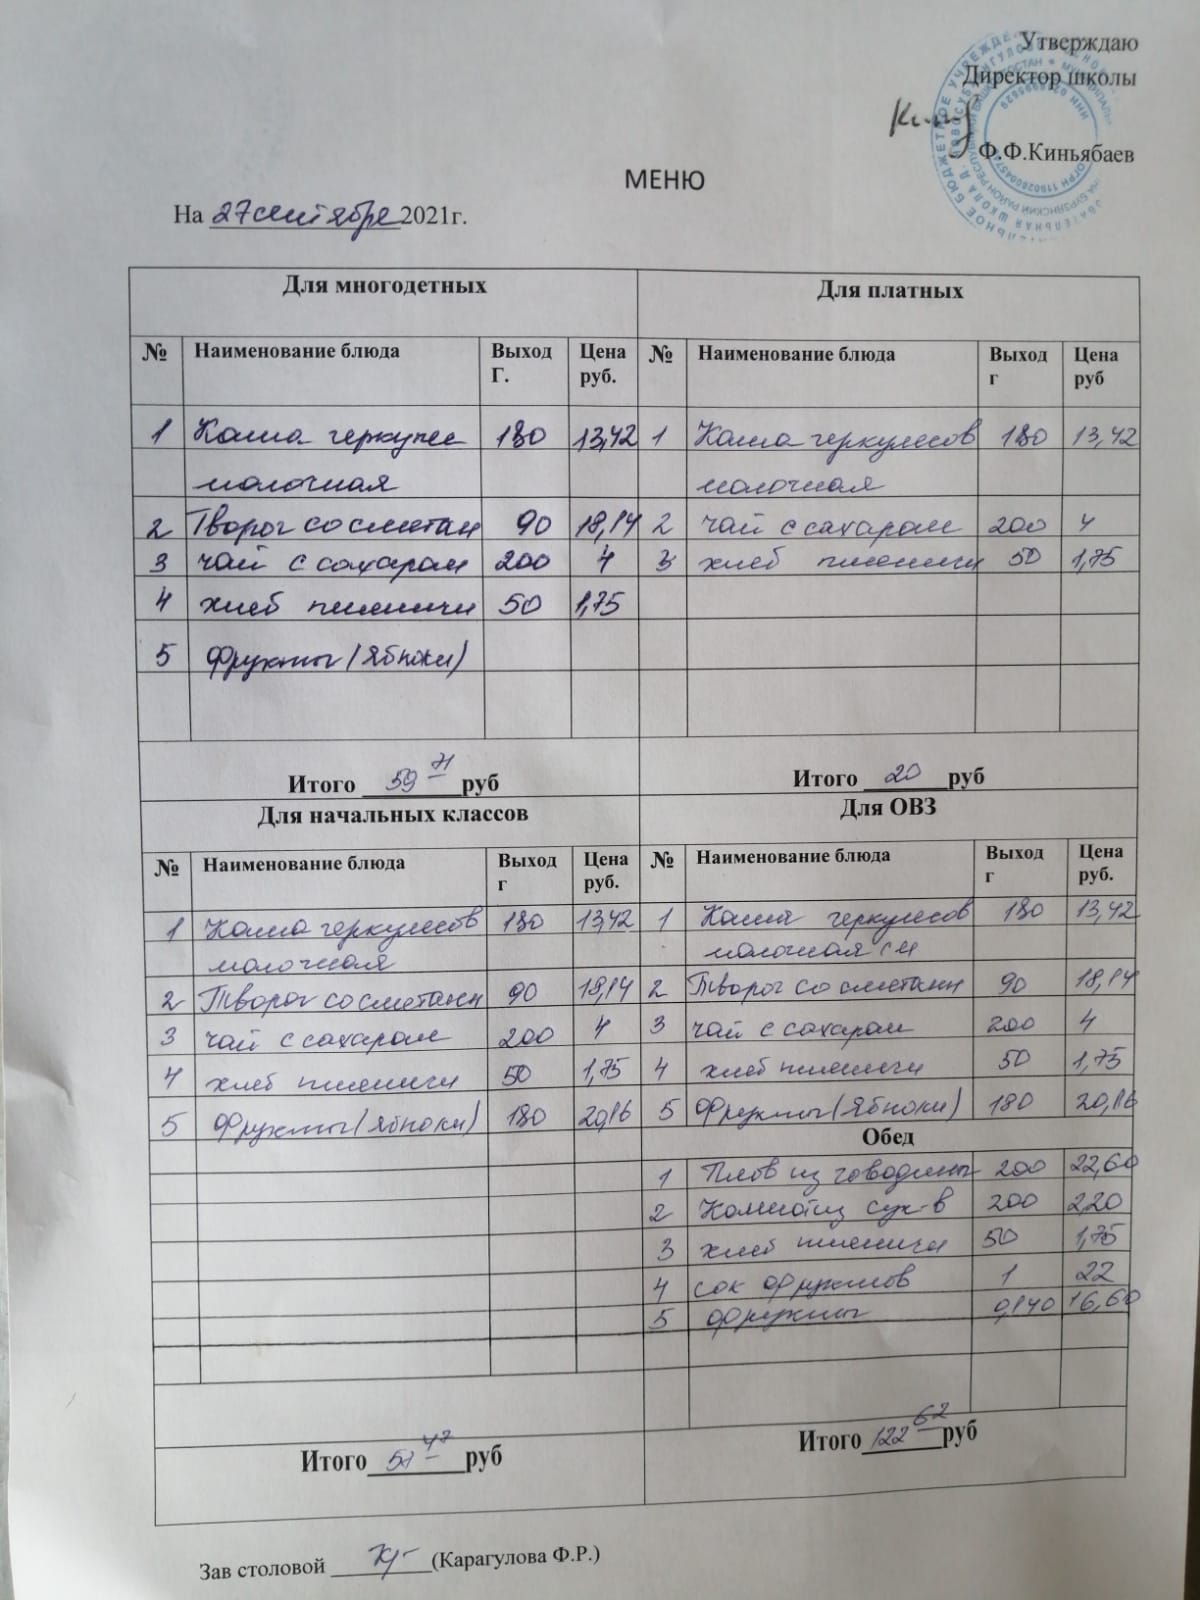 Утверждаю
Директор школы
Ф.Ф.Киньябаев
МЕНЮ
На 27 сентября 2021г.
Для многодетных
№ Наименование блюда Выход Г. Цена руб.
1 Каша геркулес 180 13,42
молочная
2 Творог со сметан 90 18,14
3 чай с сахаром 200 4
4 хлеб пшеничн 50 1,75
5 Фрукты (яблоки)
Итого 59 71 руб
Для платных
№ Наименование блюда Выход г Цена руб
1 Каша геркулесов 180 13,42
молочная
2 чай с сахаром 200 4
3 хлеб пшеничн 50 1,75
Итого 20 руб
Для начальных классов
№ Наименование блюда Выход г Цена руб.
1 Каша геркулесов 180 13,42
молочная
2 Творог со сметанн 90 18,14
3 чай с сахаром 200 4
4 хлеб пшеничн 50 1,75
5 Фрукты (яблоки) 180 20,16
Итого 57 47 руб
Для ОВЗ
№ Наименование блюда Выход г Цена руб.
1 Каша геркулесов 180 13,42
молочная
2 Творог со сметанн 90 18,14
3 чай с сахаром 200 4
4 хлеб пшеничн 50 1,75
5 Фрукты (яблоки) 180 20,16
Обед
1 Плов из говядины 200 22,60
2 Компот из сух-в 200 2,20
3 хлеб пшеничн 50 1,75
4 сок фруктов 1 22
5 фрукты 0,140 16,60
Итого 122 62 руб
Зав столовой (Карагулова Ф.Р.)